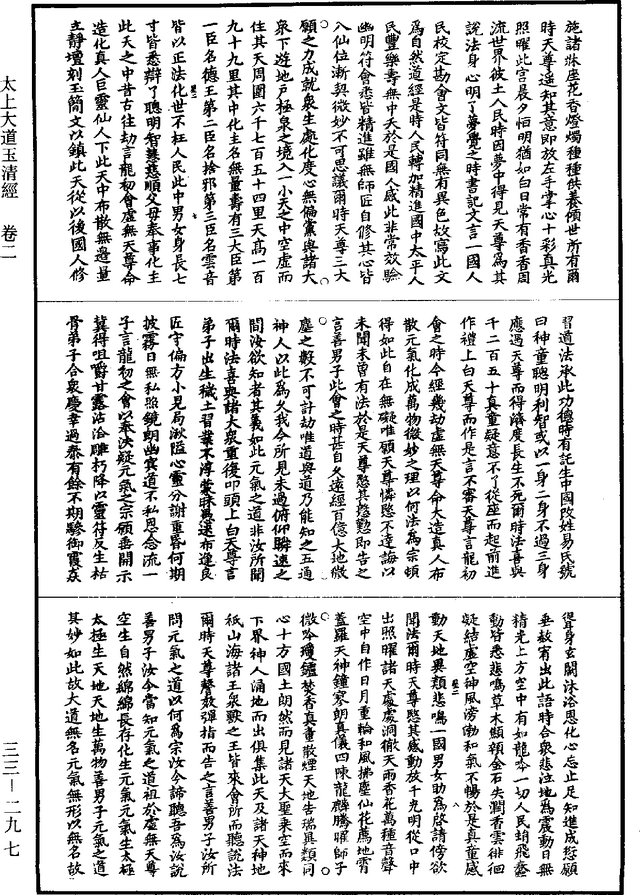 太上大道玉清經　卷二
三三—二九七
施諸牀座花香燈燭種種供養傾世所有爾
時天尊遥知其意即放左手掌心十彩真光
照曜此宫晨夕恒明猶如白日常有香香周
流世界彼土人民時因夢中得見天尊為其
說法身心明了夢覺之時書記文言一國人
民校定勘會文皆符同無有異色故寫此文
為自然道經是時人民轉加精進國中太平人
民豐樂壽無中夭於是國人感此非常放驗
幽明符會悉皆精進雖無師匠自修其心皆
入仙位漸契微妙不可思議爾時天尊三大
願之力成就衆生處化度心無偏黨與諸大
衆下遊地戶極泉之境入一小天之中空虚而
住其天周圍六千七百五十四里天髙一百
九十九里其中化主名無量壽有三大臣第
一臣名德王第二臣名捨邪第三臣名雲音
皆以正法化世不枉人民此中男女身長七
寸皆悉辯了聰明智慧慈順父母奉事化主
此天之中昔古往劫言龍初會虚無天尊命
造化真人巨靈仙人下此天中布散無邊量
立静壇刻玉簡文以鎮此天從以後國人修
習道法承此功德時有託生中國改姓易氏號
曰神童聰明利智或以一身二身不過三身
應過天尊而得濟度長生不死爾時法喜與
千二百五十真童疑意不了從座而起前進
作禮上白天尊而作是言不審天尊言龍初
會之時今經幾劫虚無天尊命大造真人布
散元氣化成萬物微妙之理以何法為宗頓
得如此自在無礙唯願天尊憐愍不達誨以
未聞未曽有法於是天尊愍其慇懃即告之
言善男子此會之時甚自久逺經百億大地微
塵之數不可計劫唯道與道乃能知之五通
神人以此為久我今所見未過俯仰瞬速之
間汝欲知者其義如此元氣之道非汝所聞
爾時法喜與諸大衆重復叩頭上白天尊言
弟子出生穢土習業不淳蒙時熟運布逢良
匠守偏方小見局漱隘心靈分謝重昏何期
披霧日無私照鏡朗幽冥道不私恩念流一
子言龍初之會以奉決疑元氣之宗願垂開示
冀得咀嚼甘露沾洽雕朽降以靈符反生枯
骨弟子合衆慶幸過泰有餘不期驂御霞焱
得身玄闕沐浴恩化心忘止足知進成愆願
垂赦宥出此語時合衆悲泣地為震動日無
精光上方空中有如龍吟一切人民蜎飛蠢
動皆悉悲鳴草木顦顇金石失潤香雲徘徊
凝結虚空神風滂勃和氣不暢於是真童感
動天地異類悲鳴一國男女助為啓請傍欲
聞法爾時天尊愍其感動放千光明從口中
出照曜諸天處處洞徹天雨香花萬種音聲
空中自作日月重輪和風拂塵仙花薦地霄
蓋羅天神鐘寥朗真儀四陳龍麟騰曜師子
微吟瓊鑪焚香真童散煙天地告瑞異類同
心十方國土朗然而見諸天大聖乗空而來
下界神人涌地而出俱集此天及諸天神地
秖山海諸王衆獸之王皆來會所而聽說法
爾時天尊謦欬彈指而告之言善男子汝所
問元氣之道以何為宗汝今諦聽吾為汝說
善男子汝今當知元氣之道祖於虚無天尊
空生自然綿綿長存化生元氣元氣生太極
太極生天地天地生萬物善男子元氣之道
其妙如此故大道無名元氣無形以無名故